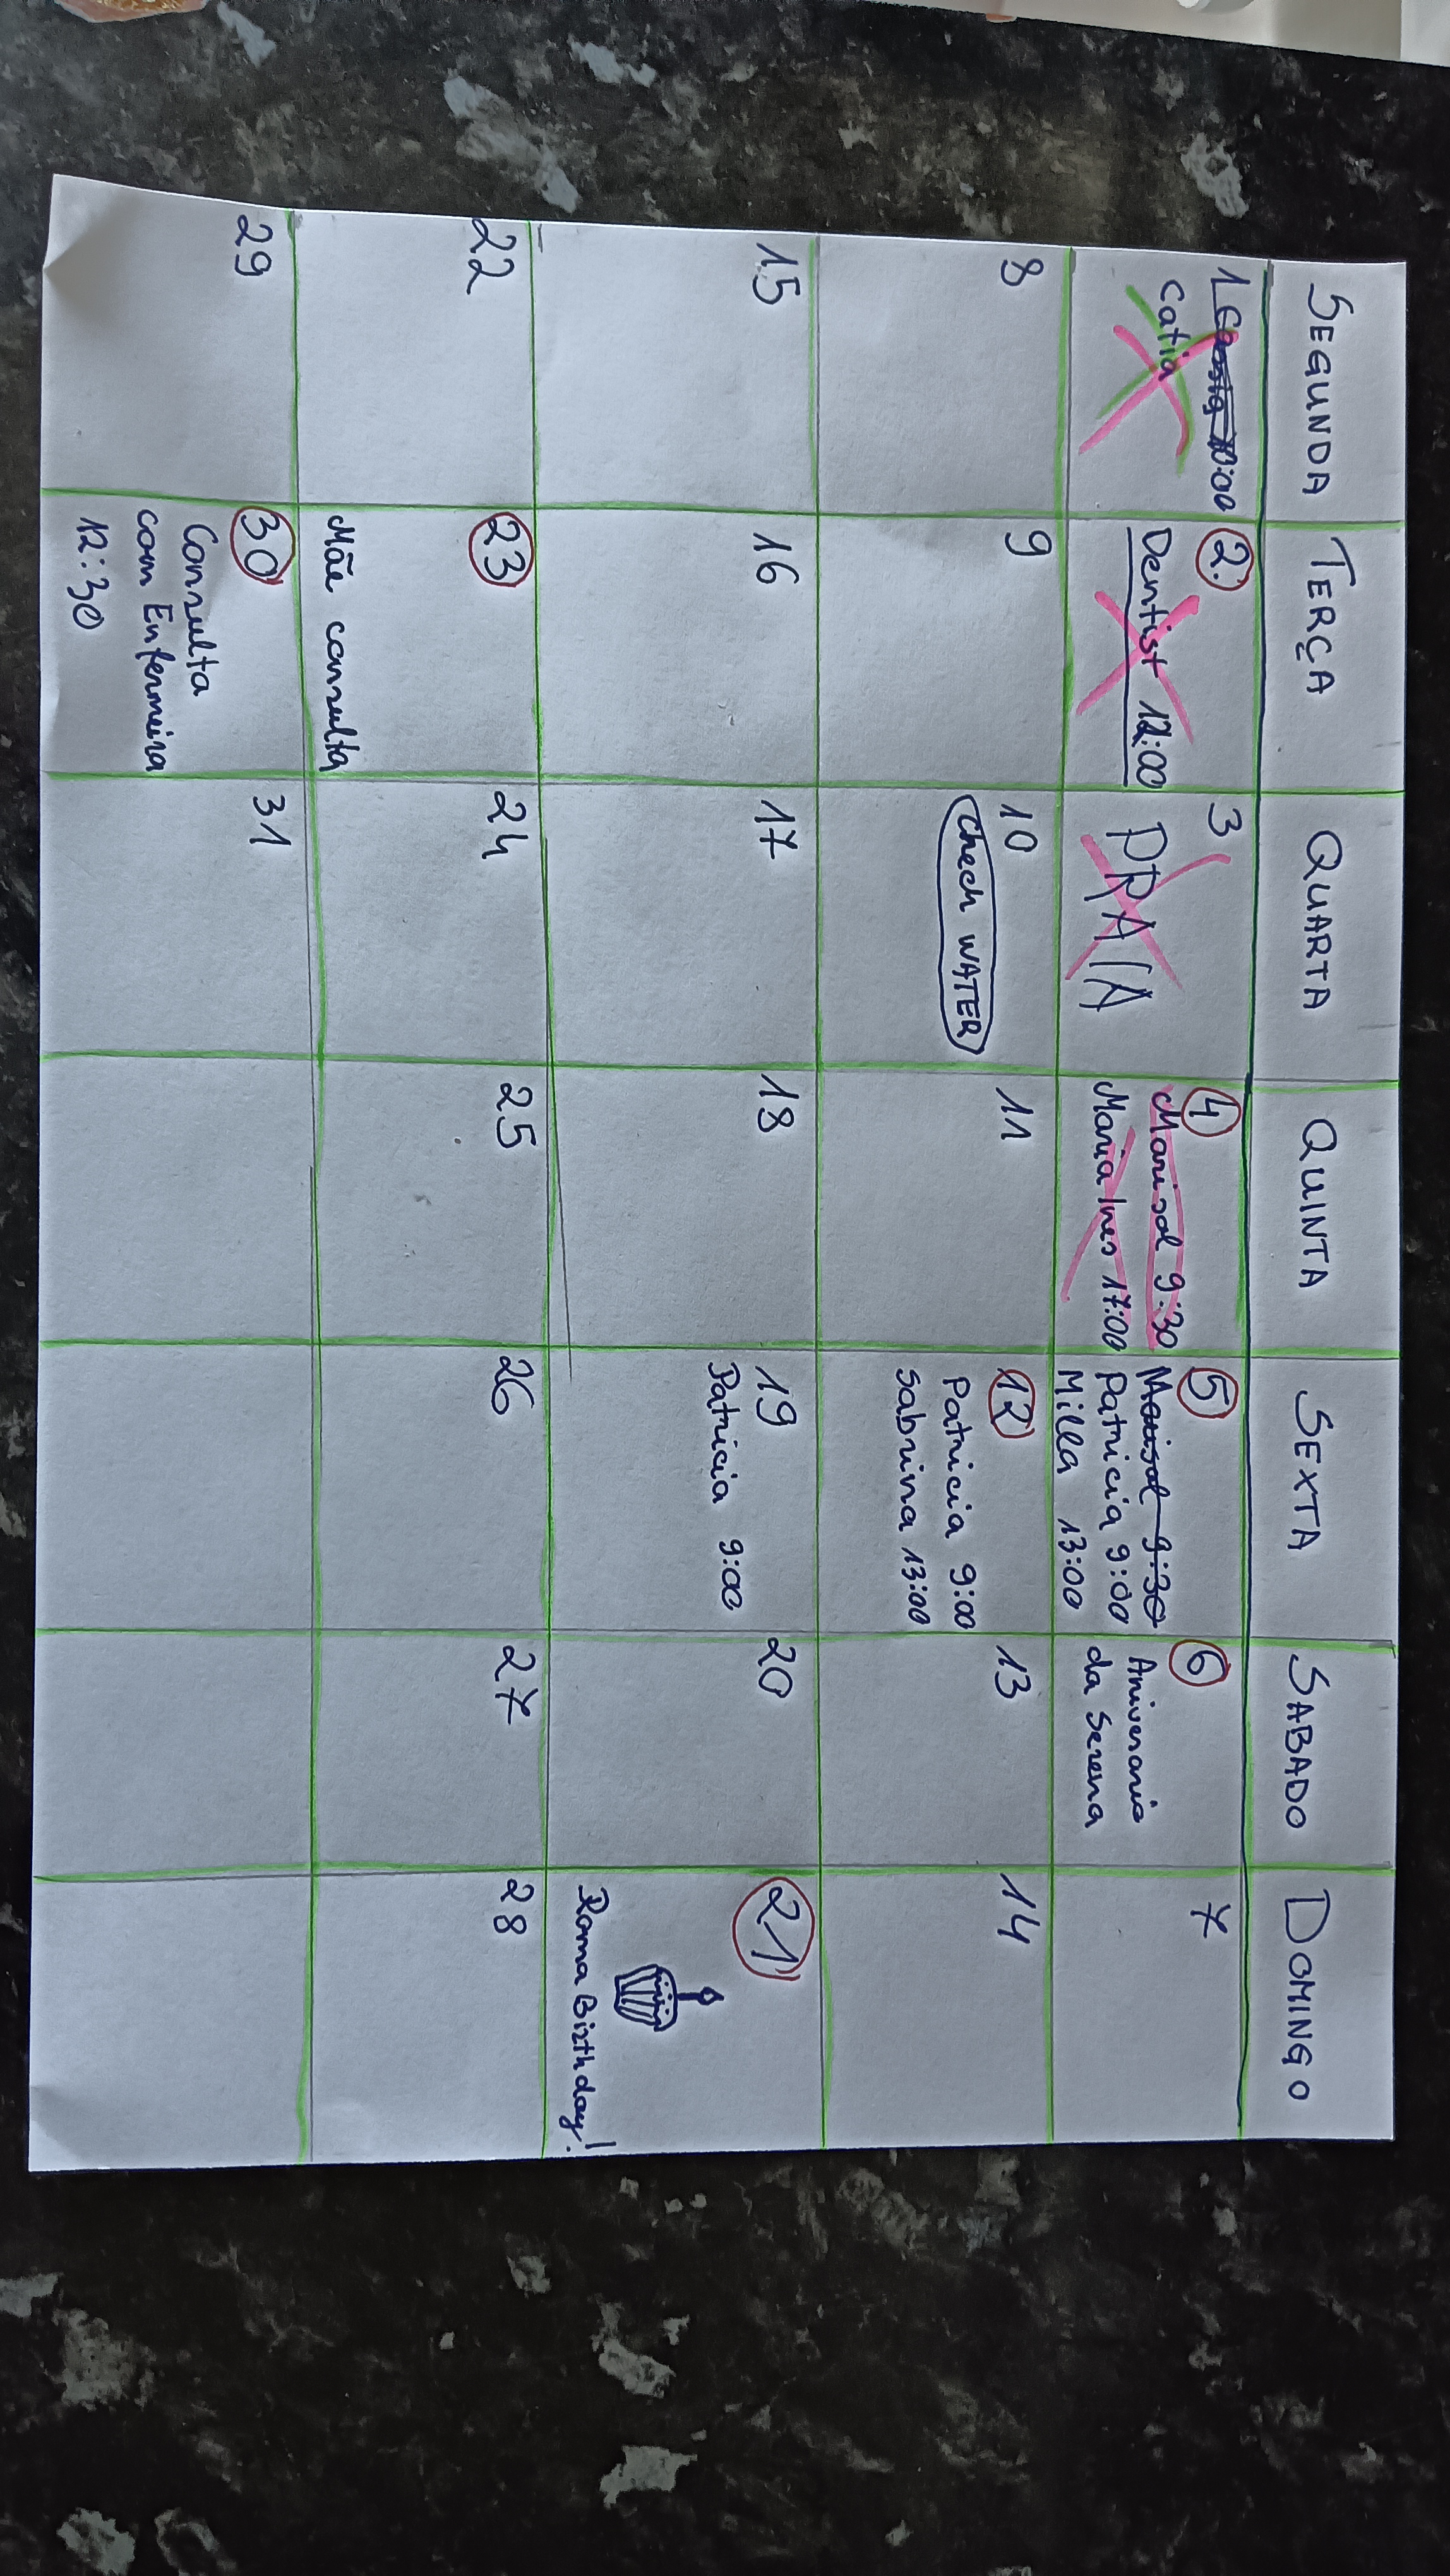 SEGUNDA TERÇA QUARTA QUINTA SEXTA SABADO DOMINGO
1 10:00
Catia
2.
Dentist 12:00
3
PRAIA
4
Marisol 9:30
Maria Ines 17:00
5
Marisol 9:30
Patricia 9:00
Milla 13:00
6
Aniversario
da Serena
7
8
9
10
Chech WATER
11
12
Patricia 9:00
Sabrina 13:00
13
14
15
16
17
18
19
Patricia 9:00
20
21
Roma Birthday!
22
23
Mãe consulta
24
25
26
27
28
29
30
Consulta
com Enfermeira
12:30
31